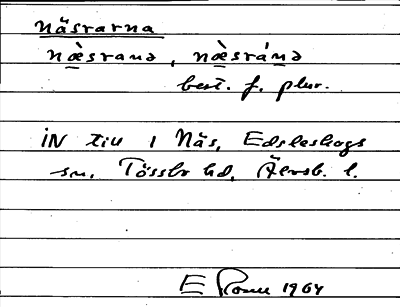 Näsrarna
næ̀srana, næ̀sránə
best. f. plur.
IN till 1 Näs, Edsleskogs
sn, Tössbo hd, Älvsb. l.
E Rosell 1964